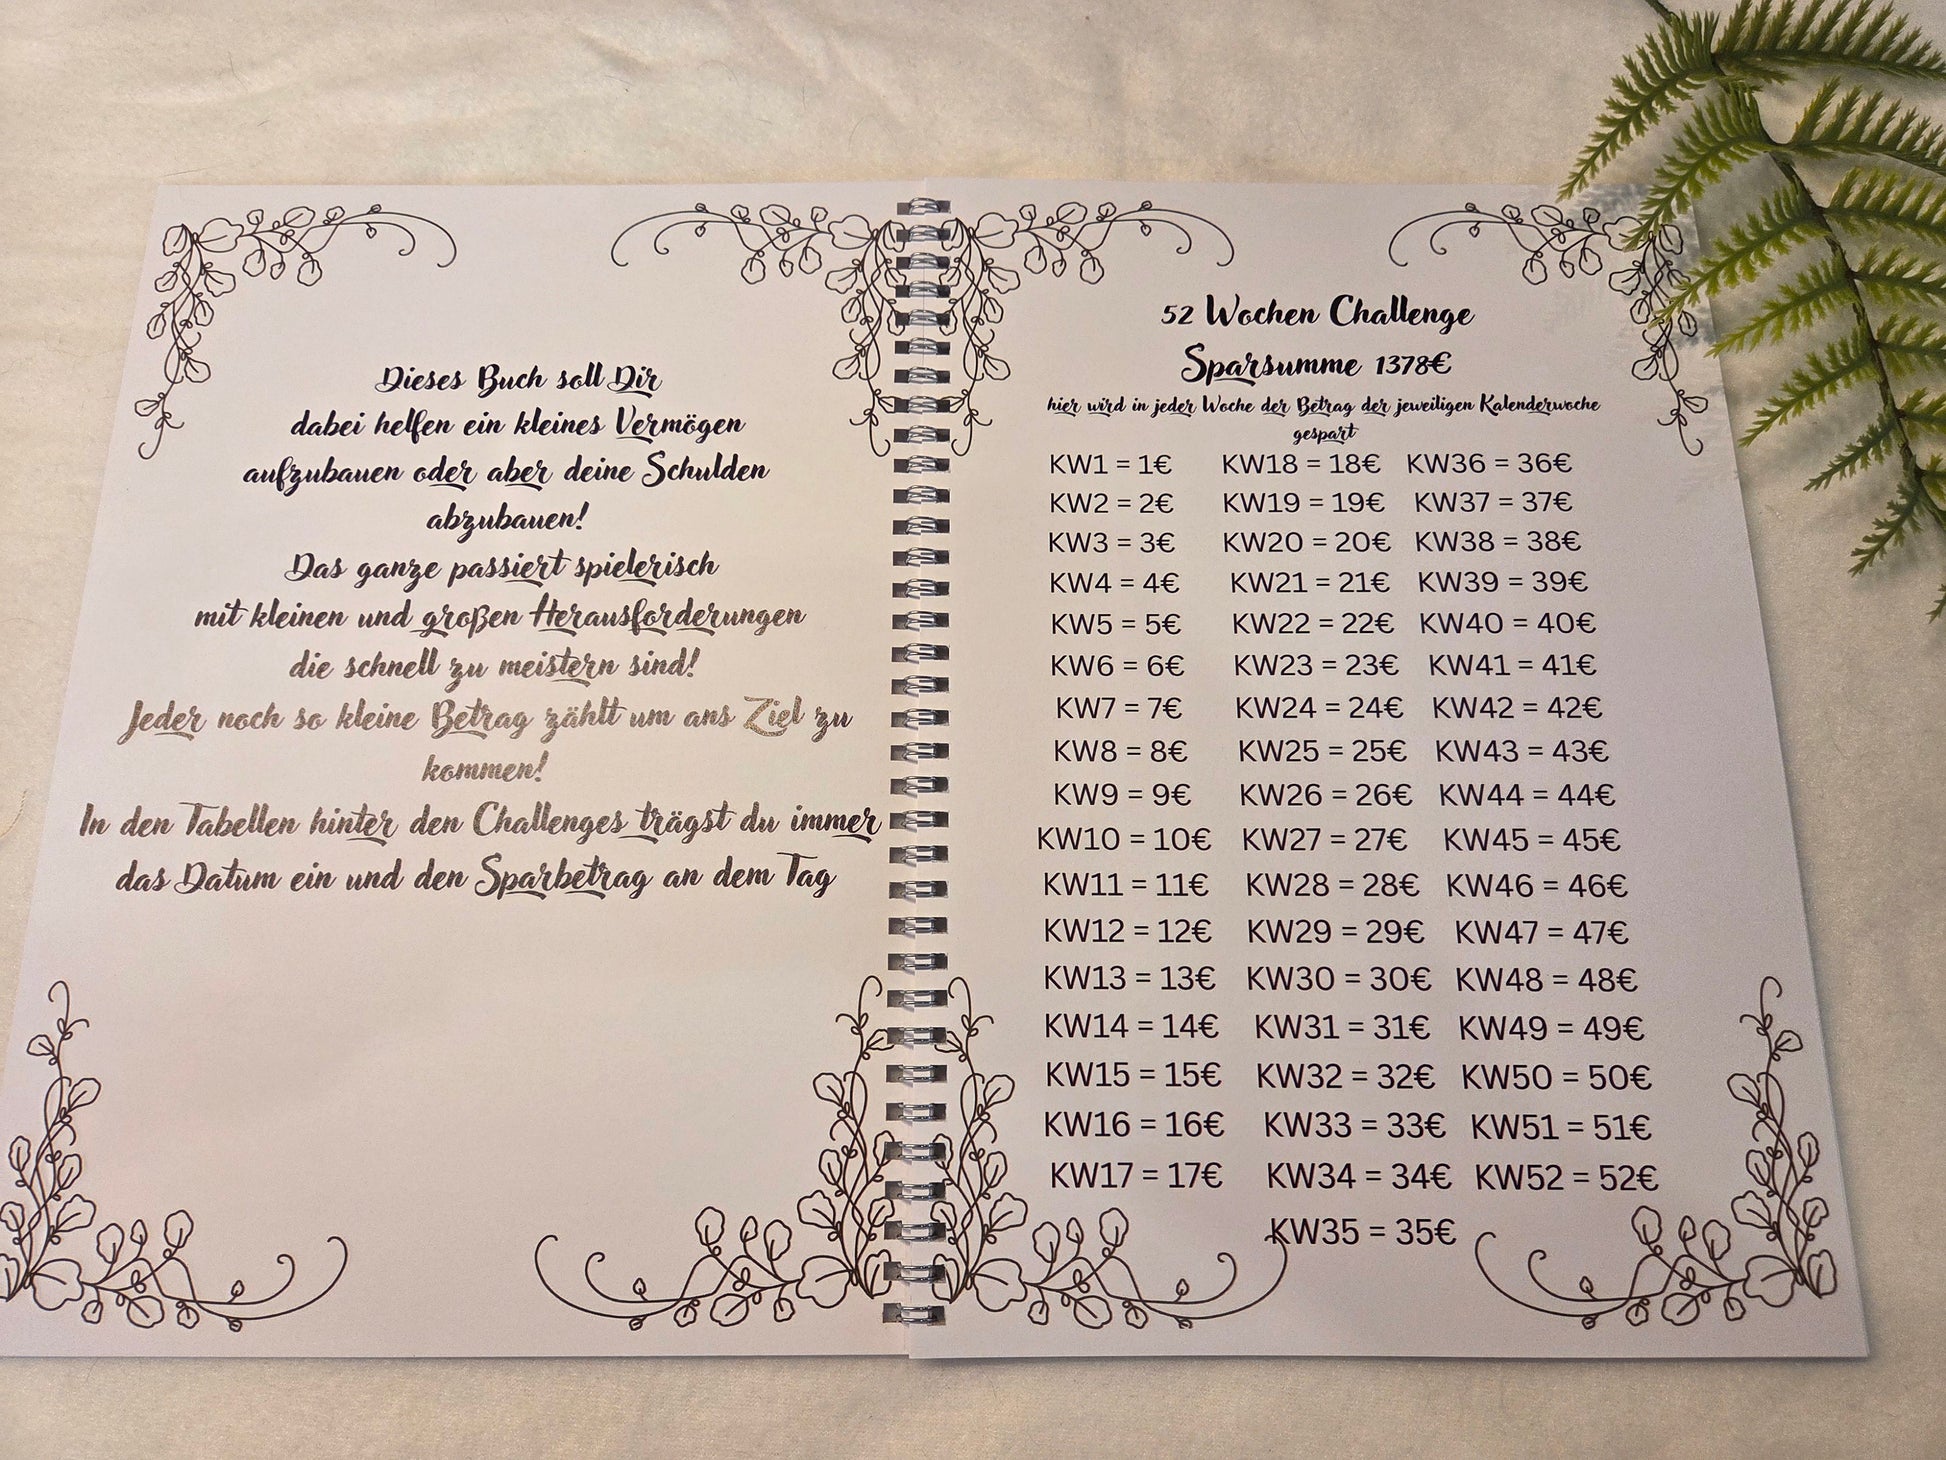 Dieses Buch soll Dir
dabei helfen ein kleines Vermögen
aufzubauen oder aber deine Schulden
abzubauen!
Das ganze passiert spielerisch
mit kleinen und großen Herausforderungen
die schnell zu meistern sind!
Jeder noch so kleine Betrag zählt um ans Ziel zu
kommen!
In den Tabellen hinter den Challenges trägst du immer
das Datum ein und den Sparbetrag an dem Tag
52 Wochen Challenge
Sparsumme 1378€
hier wird in jeder Woche der Betrag der jeweiligen Kalenderwoche
gespart
KW1 = 1€ KW18 = 18€ KW36 = 36€
KW2 = 2€ KW19 = 19€ KW37 = 37€
KW3 = 3€ KW20 = 20€ KW38 = 38€
KW4 = 4€ KW21 = 21€ KW39 = 39€
KW5 = 5€ KW22 = 22€ KW40 = 40€
KW6 = 6€ KW23 = 23€ KW41 = 41€
KW7 = 7€ KW24 = 24€ KW42 = 42€
KW8 = 8€ KW25 = 25€ KW43 = 43€
KW9 = 9€ KW26 = 26€ KW44 = 44€
KW10 = 10€ KW27 = 27€ KW45 = 45€
KW11 = 11€ KW28 = 28€ KW46 = 46€
KW12 = 12€ KW29 = 29€ KW47 = 47€
KW13 = 13€ KW30 = 30€ KW48 = 48€
KW14 = 14€ KW31 = 31€ KW49 = 49€
KW15 = 15€ KW32 = 32€ KW50 = 50€
KW16 = 16€ KW33 = 33€ KW51 = 51€
KW17 = 17€ KW34 = 34€ KW52 = 52€
KW35 = 35€